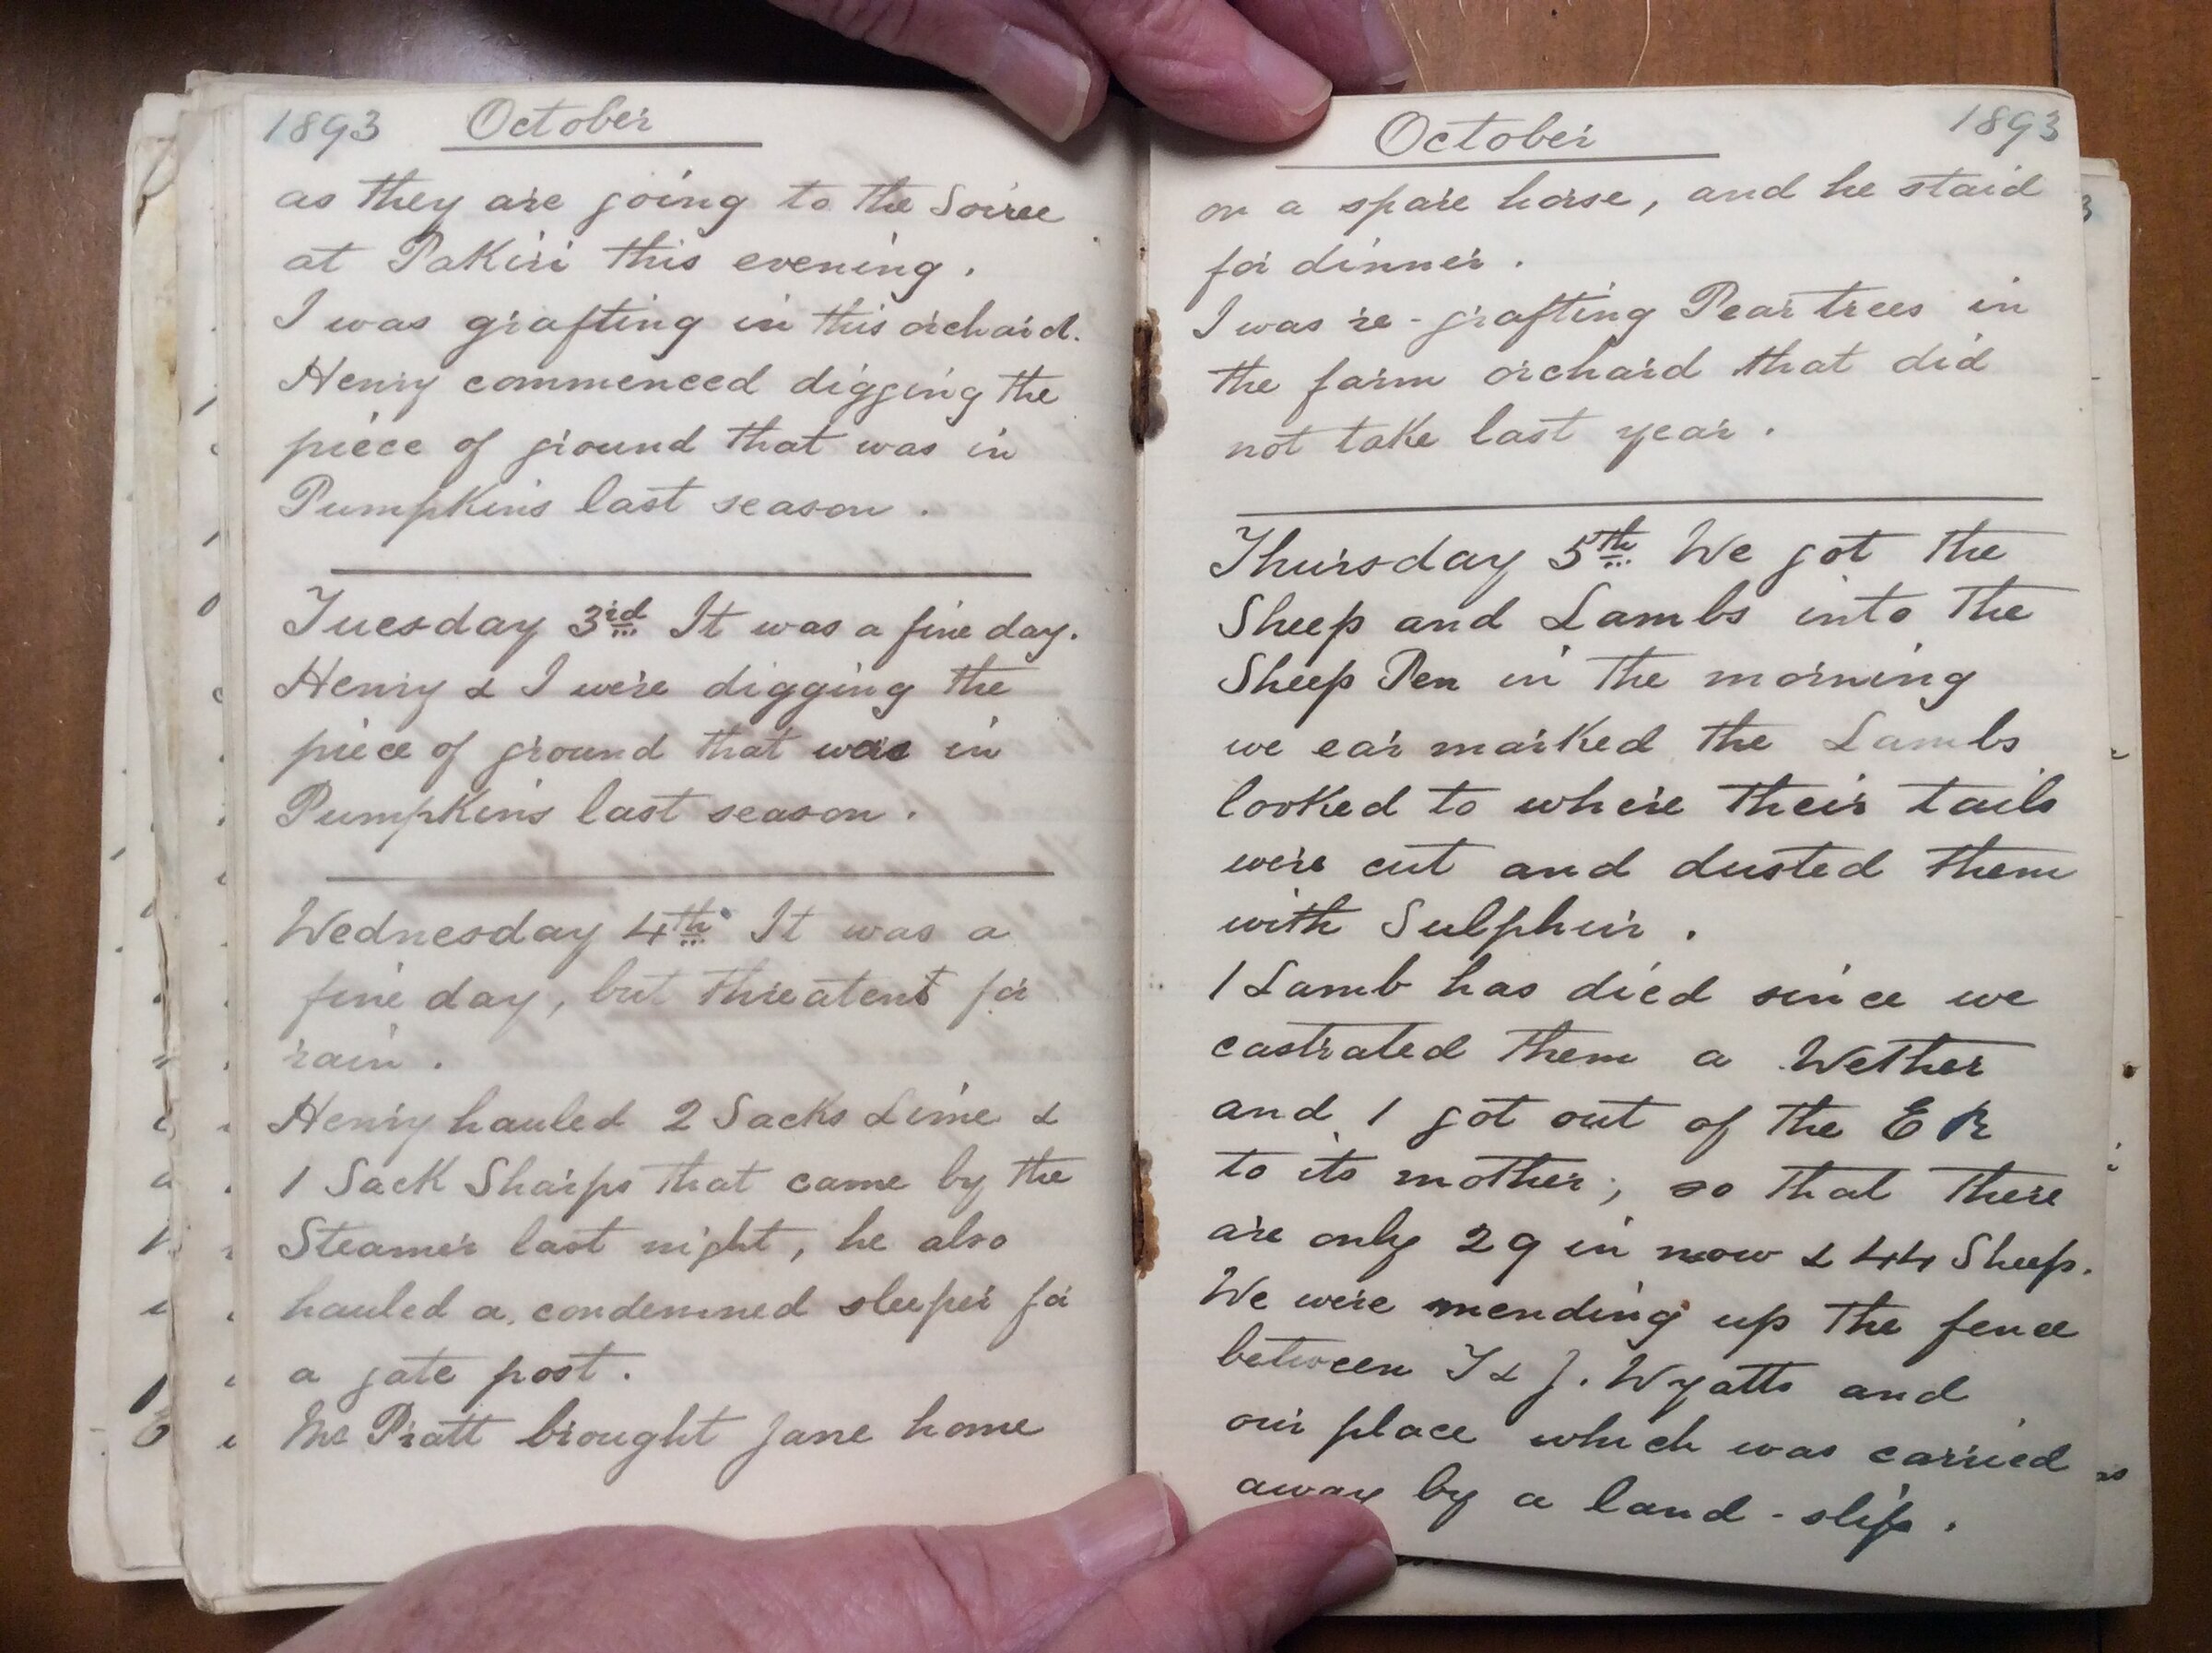 1893 October
as they are going to the Soiree
at Pakiri this evening.
I was grafting in this orchard.
Henry commenced digging the
piece of ground that was in
Pumpkins last season.
Tuesday 3rd It was a fine day.
Henry & I were digging the
piece of ground that was in
Pumpkins last season.
Wednesday 4th It was a
fine day, but threatent for
rain.
Henry hauled 2 Sacks Lime &
1 Sack Sharps that came by the
Steamer last night, he also
hauled a condemned sleeper for
a gate post.
Pratt brought Jane home
October 1893
on a spare horse, and he staid
for dinner.
I was re-grafting Pear trees in
the farm orchard that did
not take last year.
Thursday 5th We got the
Sheep and Lambs into the
Sheep Pen in the morning
we ear marked the Lambs
looked to where their tails
were cut and dusted them
with Sulphur.
1 Lamb has died since we
castrated them a Wether
and 1 got out of the E R
to its mother; so that there
are only 29 in now & 44 Sheep.
We were mending up the fence
between T & J. Wyatts and
our place which was carried
away by a land-slip.